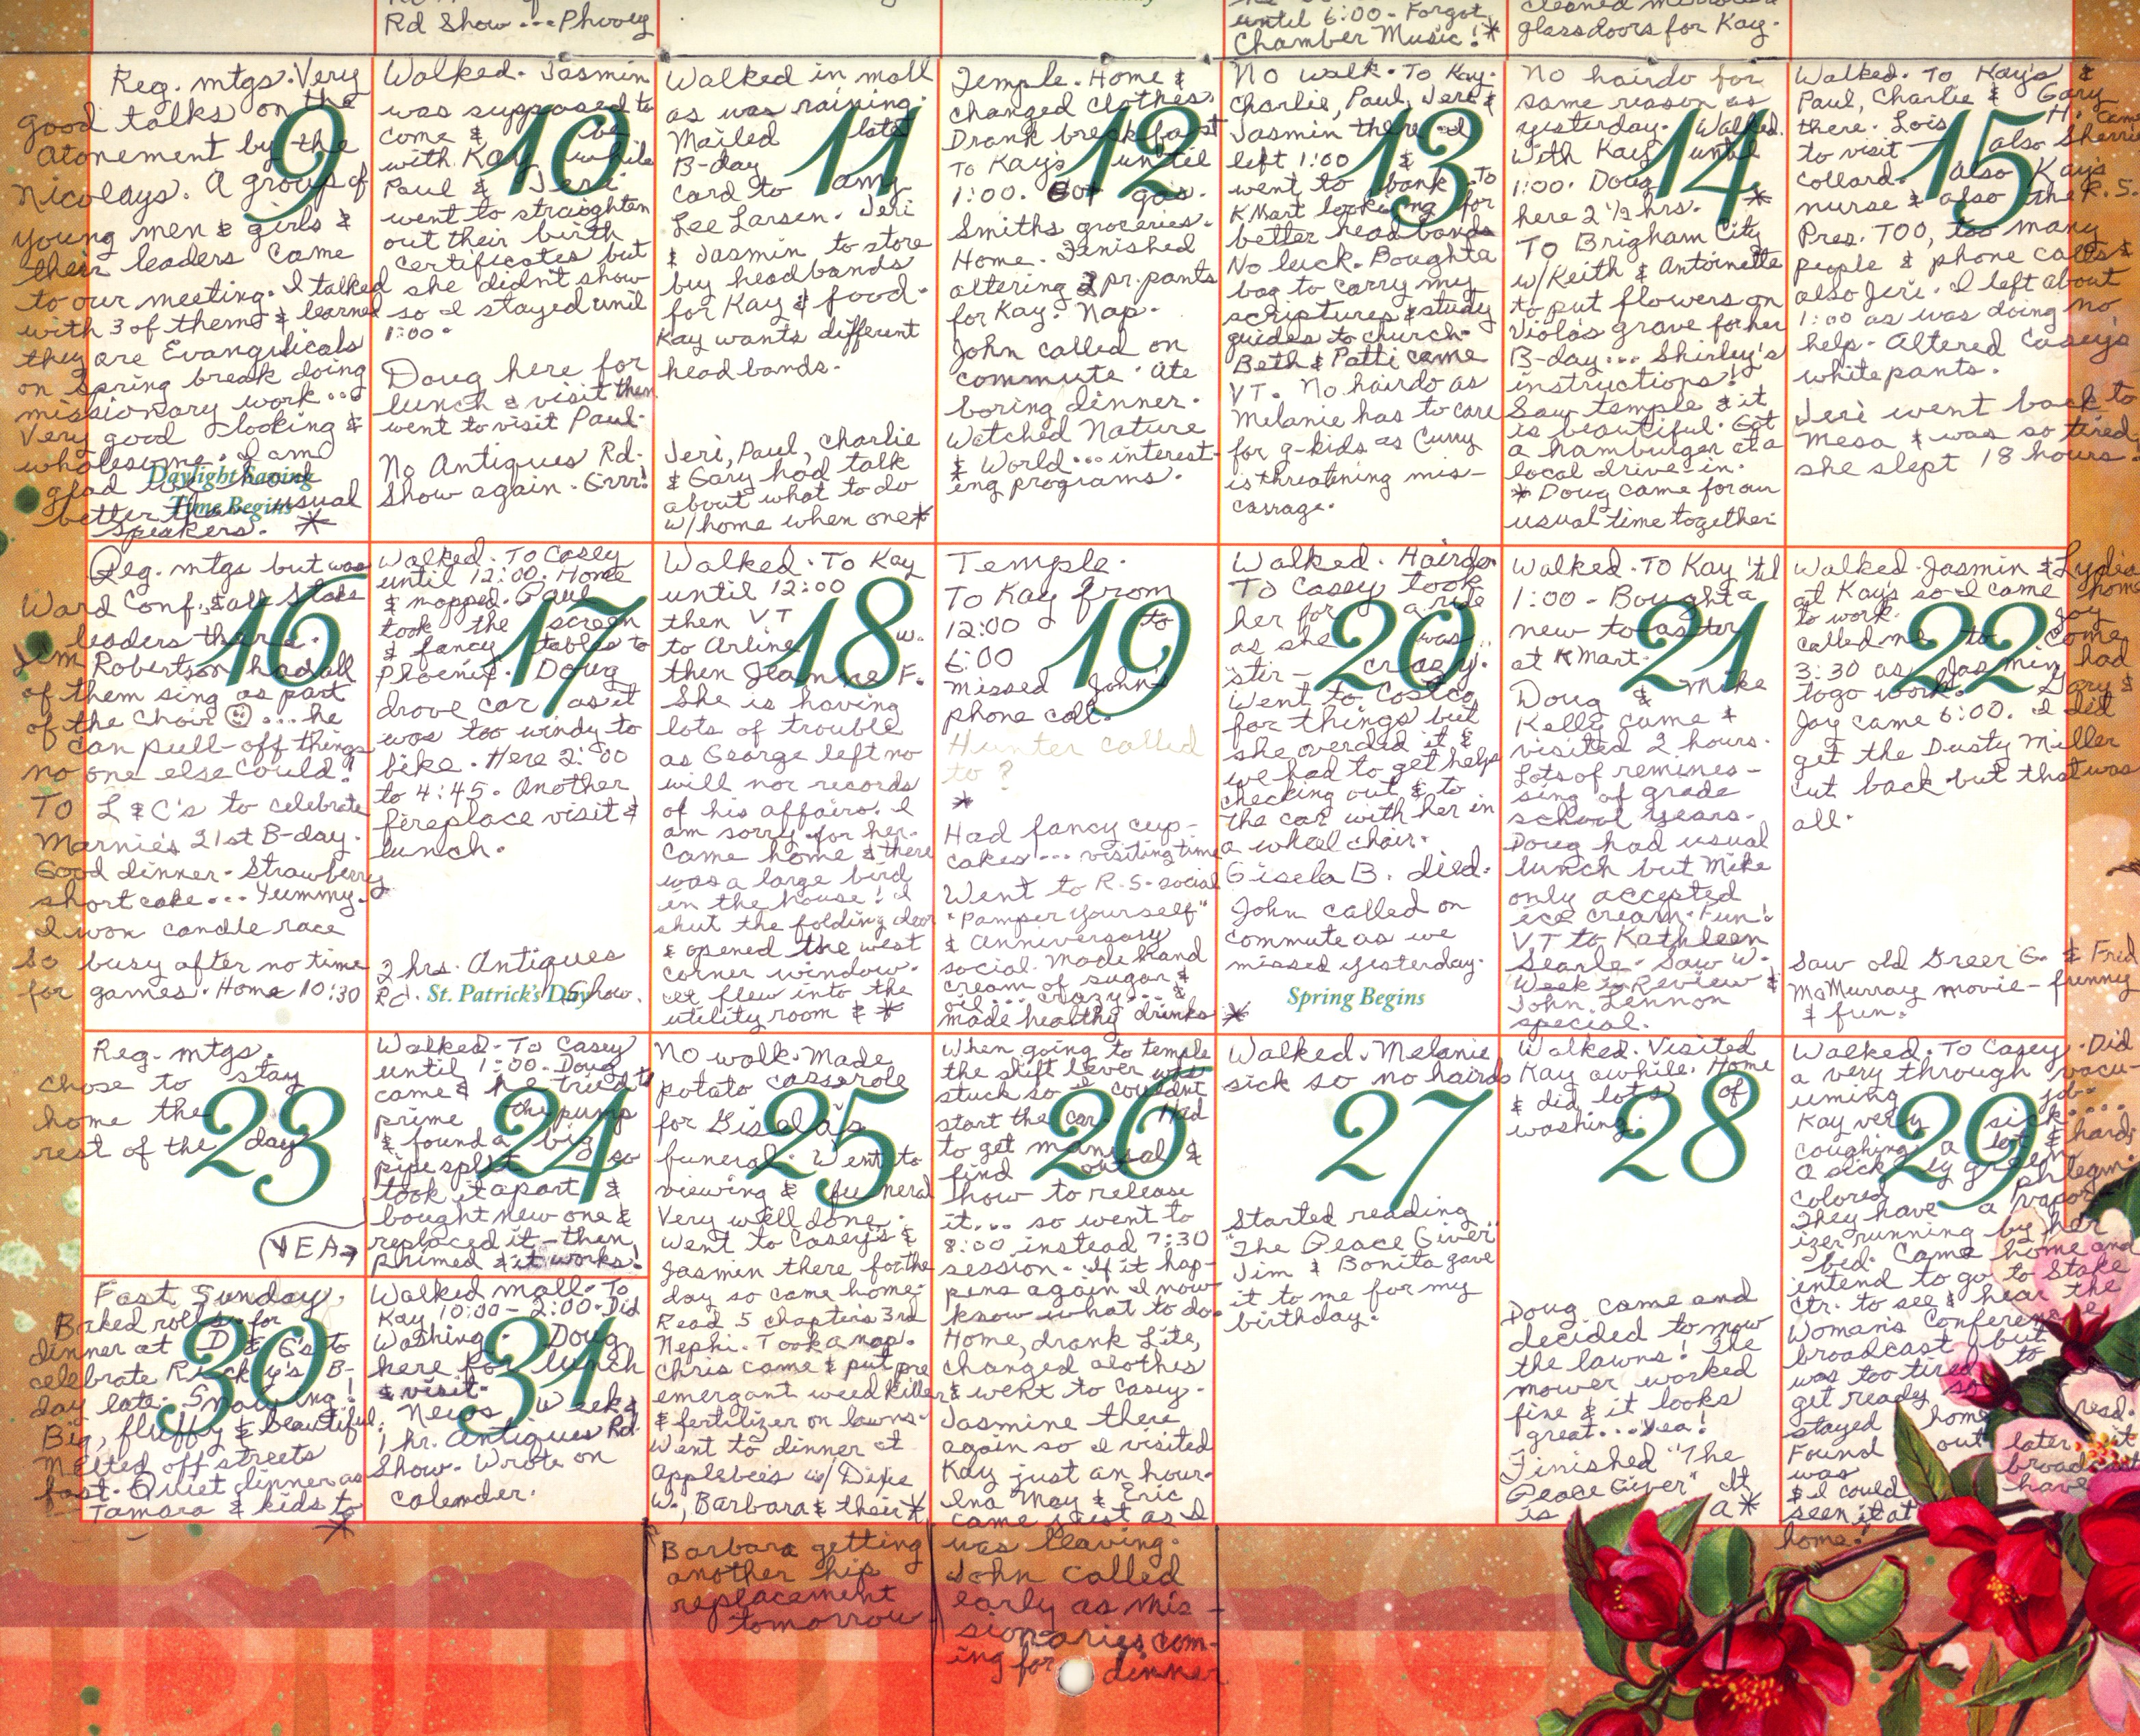 Rd Show...Phooey
until 6:00 - Forgot
Chamber Music! *
glass doors for Kay.
9
Reg. mtgs. Very
good talks on the
atonement by the
Nicolays. A group of
young men & girls &
their leaders came
to our meeting. I talked
with 3 of them & learned
they are Evangilicals
on spring break doing
missionary work...
Very good looking &
wholesome. I am
glad we have
better than usual
speakers. *
Daylight Saving
Time Begins
10
Walked. Jasmin
was supposed to
come & be
with Kay while
Paul & Jeri
went to straighten
out their birth
certificates but
she didn't show
so I stayed until
1:00.
Doug here for
lunch & visit then
went to visit Paul.
No Antiques Rd.
Show again. Grrr!
11
Walked in mall
as was raining.
Mailed late
B-day
card to Amy
Lee Larsen. Jeri
& Jasmin to store
buy headbands
for Kay & food.
Kay wants different
headbands.
Jeri, Paul, Charlie
& Gary had talk
about what to do
w/home when one*
12
Temple. Home &
changed clothes.
Drank breakfast
To Kay's until
1:00. Got gas.
Smiths groceries.
Home. Finished
altering 2 pr. pants
for Kay. Nap.
John called on
commute. Ate
boring dinner.
Watched Nature
& World...interest-
ing programs.
13
No walk. To Kay.
Charlie, Paul, Jeri &
Jasmin there. I
left 1:00 &
went to bank. To
KMart looking for
better head bands
No luck. Bought a
bag to carry my
scriptures & study
guides to church.
Beth & Patti came
VT. No hairdo as
Melanie has to care
for g-kids as Curry
is threatening mis-
carrage.
14
No hairdo for
same reason as
yesterday. Walked.
With Kay until
1:00. Doug *
here 2 1/2 hrs.
To Brigham City
w/Keith & Antoinette
to put flowers on
Viola's grave for her
B-day... Shirley's
instructions!
Saw temple & it
is beautiful. Got
a hamburger at a
local drive-in.
* Doug came for our
usual time together
15
Walked. To Kay's &
Paul, Charlie & Gary
there. Lois H. came
to visit also Sherrie
Collard. Also Kay's
nurse & also the R.S.
Pres. TOO, too many
people & phone calls &
also Jeri. I left about
1:00 as was doing no
help. Altered Casey's
white pants.
Jeri went back to
Mesa & was so tired
she slept 18 hours.
16
Reg. mtgs but was
Ward Conf. & all Stake
leaders there.
Jim Robertson had all
of them sing as part
of the choir ☺...he
can pull-off things
no one else could!
To L & C's to celebrate
Marnie's 21st B-day.
Good dinner - Strawberry
shortcake... Yummy.
I won candle race
So busy after no time
for games. Home 10:30
17
Walked. To Casey
until 12:00. Home
& mopped. Paul
took the screen
& fancy tables to
Phoenix. Doug
drove car as it
was too windy to
bike. Here 2:00
to 4:45. Another
fireplace visit &
lunch.
2 hrs. Antiques
Rd. Show.
St. Patrick's Day
18
Walked. To Kay
until 12:00
then VT
to Arline W.
then Jeanne F.
She is having
lots of trouble
as George left no
will nor records
of his affairs. I
am sorry for her.
Came home & there
was a large bird
in the house! I
shut the folding door
& opened the west
corner window.
It flew into the
utility room & *
19
Temple.
To Kay from
12:00 to
6:00
Missed John's
phone call.
Hunter called
to ?
*
Had fancy cup-
cakes... visiting time
Went to R.S. social
"Pamper Yourself"
& Anniversary
social. Made hand
cream of sugar &
oil... crazy... &
made healthy drinks
20
Walked. Hairdo.
To Casey took
her for a ride
as she was
"stir-crazy."
Went to Costco
for things but
she overdid it &
we had to get help
checking out & to
the car with her in
a wheel chair.
Gisela B. died.
John called on
commute as we
missed yesterday.
*
Spring Begins
21
Walked. To Kay 'til
1:00 - Bought a
new toaster
at KMart.
Doug & Mike
Kelly came &
visited 2 hours.
Lots of reminis-
sing of grade
school years.
Doug had usual
lunch but Mike
only accepted
ice cream. Fun!
VT to Kathleen
Searle. Saw W.
Week in Review &
John Lennon
special.
22
Walked. Jasmin & Lydia
at Kay's so I came home
to work. Jay
called me to come
3:30 as Jasmin had
to go work. Gary &
Jay came 6:00. I did
get the Dusty Miller
cut back but that was
all.
Saw old Greer G. & Fred
McMurray movie - funny
& fun.
23
Reg. mtgs.
Chose to stay
home the
rest of the day
(YEA→
24
Walked. To Casey
until 1:00. Doug
came & he tried to
prime the pump
& found a big
pipe split so
took it apart &
bought new one &
replaced it - then
primed & it works!
25
No walk. Made
potato casserole
for Gisela's
funeral. Went to
viewing & funeral
Very well done.
Went to Casey's &
Jasmin there for the
day so came home.
Read 5 chapters 3rd
Nephi. Took a nap.
Chris came & put pre
emergant weed killer
& fertilizer on lawns.
Went to dinner at
Applebees w/ Dixie
W., Barbara & their *
Barbara getting
another hip
replacement
tomorrow
26
When going to temple
the shift lever was
stuck so I couldn't
start the car. Had
to get manual &
find out
how to release
it... so went to
8:00 instead 7:30
session. If it hap-
pens again I now
know what to do.
Home, drank Lite,
changed clothes
& went to Casey.
Jasmine there
again so I visited
Kay just an hour.
Ina May & Eric
came just as I
was leaving.
John called
early as mis-
sionaries com-
ing for dinner
27
Walked. Melanie
sick so no hairdo
Started reading
"The Peace Giver"
Jim & Bonita gave
it to me for my
birthday.
28
Walked. Visited
Kay awhile. Home
& did lots of
washing.
Doug came and
decided to mow
the lawns! The
mower worked
fine & it looks
great... Yea!
Finished "The
Peace Giver" It
is a *
29
Walked. To Casey. Did
a very through vacu-
uming job.
Kay very sick....
coughing a lot & hard;
a sickly green
colored phlegm.
They have a vapor-
izer running by her
bed. Came home and
intend to go to Stake
Ctr. to see & hear the
Woman's Conference
broadcast but
was too tired to
get ready so
stayed home & read.
Found out later it
was broadcast
& I could have
seen it at
home!
30
Fast Sunday.
Baked rolls for
dinner at D & G's to
celebrate Ricky's B-
day late. Snowing!
Big, fluffy & beautiful;
Melted off streets
fast. Quiet dinner as
Tamara & kids to
*
31
Walked mall. To
Kay 10:00 - 2:00. Did
Washing. Doug
here for lunch
& visit.
News Week &
1 hr. Antiques Rd.
Show. Wrote on
calender.